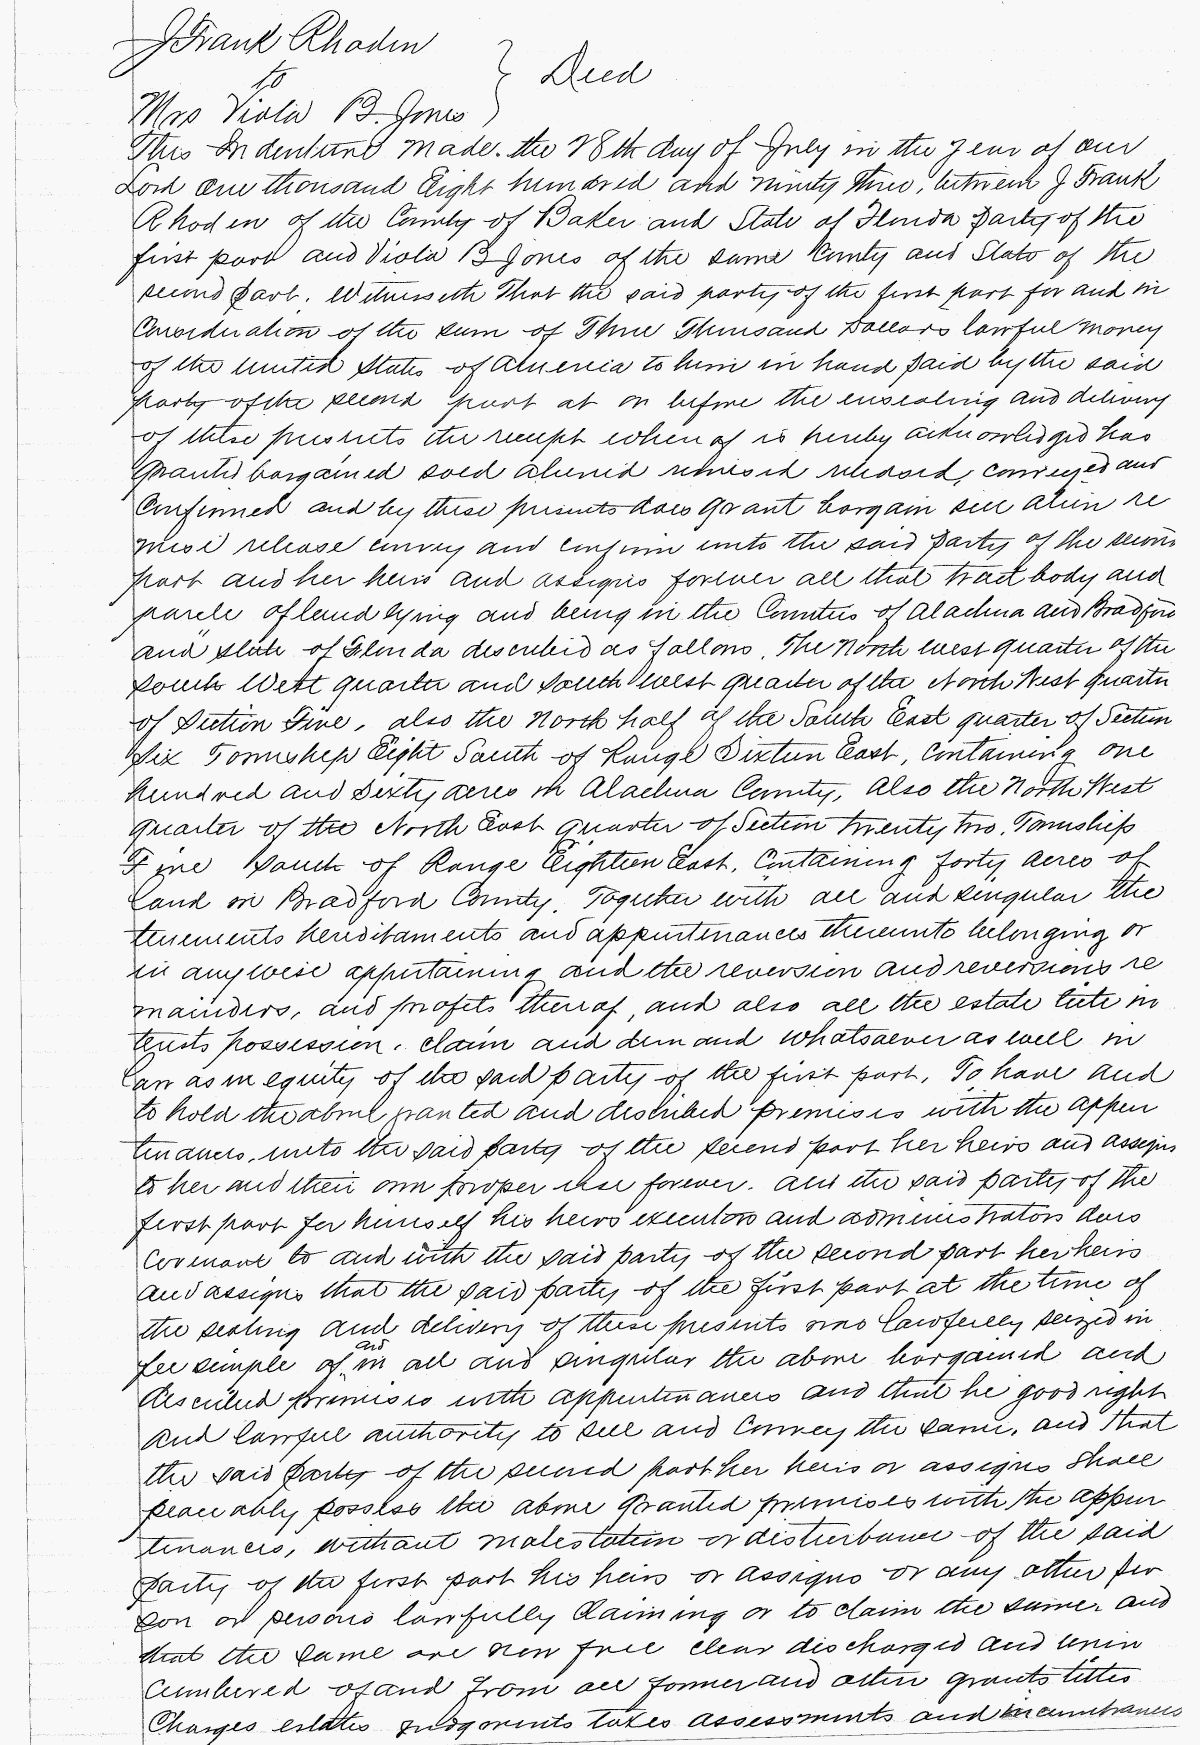 J Frank Rhoden
to } Deed
Mrs Viola B. Jones
This Indenture made the 28th day of July in the year of our
Lord one thousand Eight hundred and ninety three, between J Frank
Rhoden of the County of Baker and State of Florida Party of the
first part and Viola B Jones of the same County and State of the
second part. Witnesseth That the said party of the first part for and in
Consideration of the sum of Three Thousand Dollars lawful money
of the United States of America to him in hand paid by the said
party of the second part at or before the ensealing and delivery
of these presents the receipt whereof is hereby acknowledged has
granted bargained sold aliened remised released, conveyed and
Confirmed and by these presents does grant bargain sell alien re
mise release convey and confirm unto the said party of the second
part and her heirs and assigns forever all that tract body and
parcle of land lying and being in the Counties of Alachua and Bradford
and state of Florida described as follows. The North west quarter of the
South West quarter and South West quarter of the North West quarter
of Section Five, also the North half of the South East quarter of Section
Six Township Eight South of Range Sixteen East, Containing one
hundred and Sixty acres in Alachua County, Also the North West
quarter of the North East quarter of Section twenty two, Township
Five South of Range Eighteen East, Containing forty acres of
land in Bradford County. Together with all and singular the
tenements hereditaments and appurtenances thereunto belonging or
in anywise appertaining and the reversion and reversions re
mainders, and profits thereof, and also all the estate title in
terests possession, claim and demand whatsoever as well in
law as in equity of the said party of the first part, To have and
to hold the above granted and described premises with the appur
tenances, unto the said party of the second part her heirs and assigns
to her and their own proper use forever. and the said party of the
first part for himself his heirs executors and administrators does
covenant to and with the said party of the second part her heirs
and assigns that the said party of the first part at the time of
the sealing and delivery of these presents was lawfully seized in
fee simple of and in all and singular the above bargained and
described premises with appurtenances and that he good right
and lawful authority to sell and convey the same, and that
the said party of the second part her heirs or assigns shall
peaceably possess the above granted premises with the appur
tenances, without molestation or disturbance of the said
party of the first part his heirs or assigns or any other per
son or persons lawfully claiming or to claim the same and
that the same are now free clear discharged and unin
cumbered of and from all former and other grants titles
Charges estates judgments taxes assessments and incumbrances